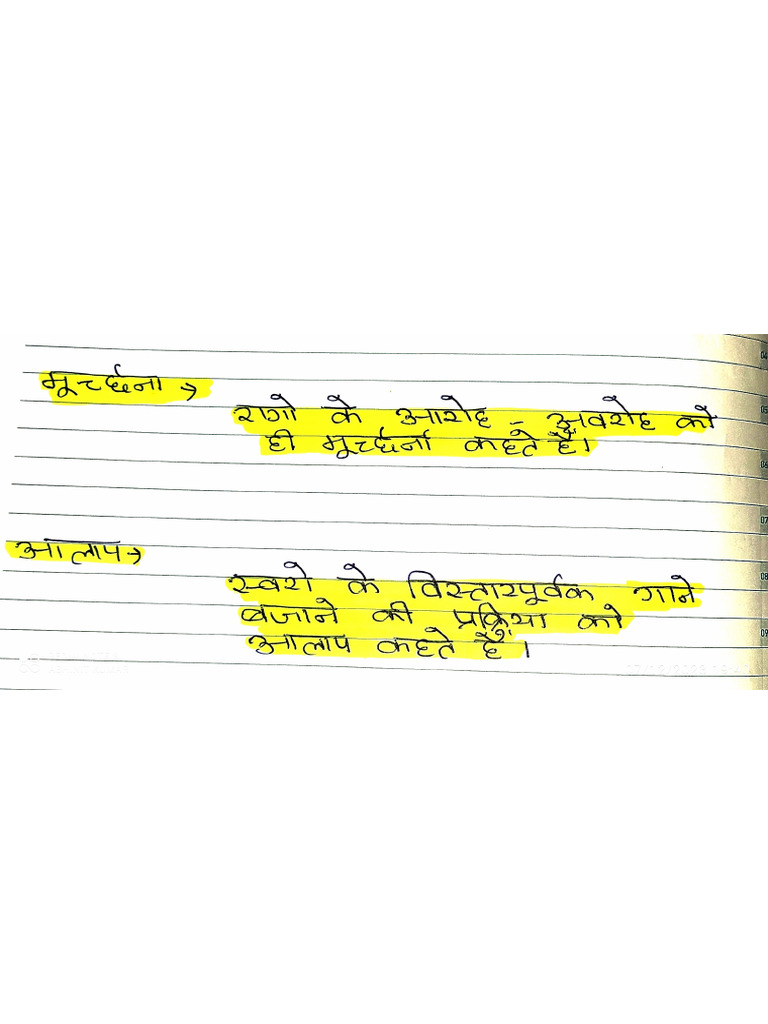 मूर्च्छना →
रागो के आरोह - अवरोह को
ही मूर्च्छना कहते है।
आलाप →
स्वरो के विस्तारपूर्वक गाने
बजाने की प्रक्रिया को
आलाप कहते है।
04
05
06
07
08
09